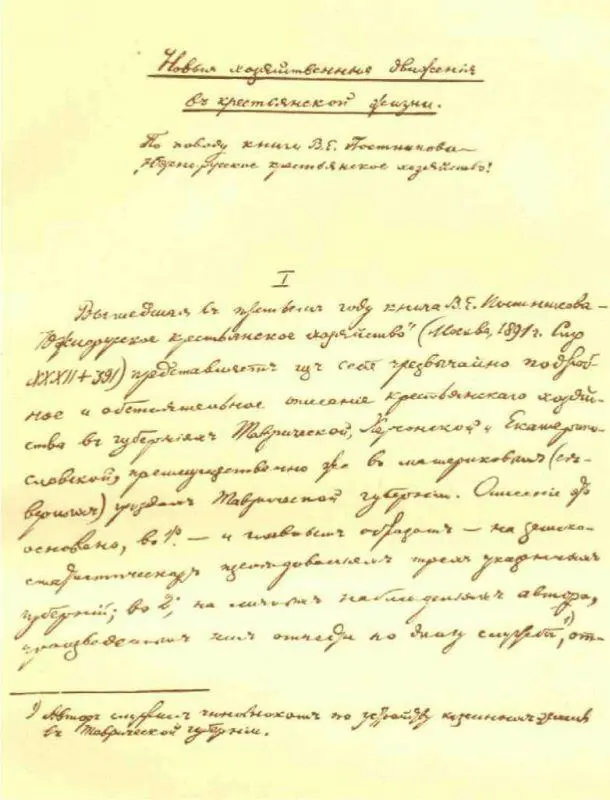 Новыя хозяйственныя движенія
въ крестьянской жизни.
По поводу книги В.Е. Постникова —
"Южно-русское крестьянское хозяйство".
I
Вышедшая въ третьемъ году книга В.Е. Постникова —
"Южнорусское крестьянское хозяйство" (Москва, 1891 г. Стр.
XXXII + 391) представляетъ изъ себя чрезвычайно подроб-
ное и обстоятельное описаніе крестьянскаго хозяй-
ства въ губерніяхъ Таврической, Херсонской и Екатерино-
славской, преимущественно же въ материковыхъ (сѣ-
верныхъ) уѣздахъ Таврической губерніи. Описаніе это
основано, во 1хъ. — и главнымъ образомъ — на земско-
статистическихъ изслѣдованіяхъ трехъ указанныхъ
губерній; во 2хъ, на личныхъ наблюденіяхъ автора,
произведенныхъ имъ отчасти по долгу службы 1), от-
1) Авторъ служилъ чиновникомъ по устройству казенныхъ земель
въ Таврической губерніи.